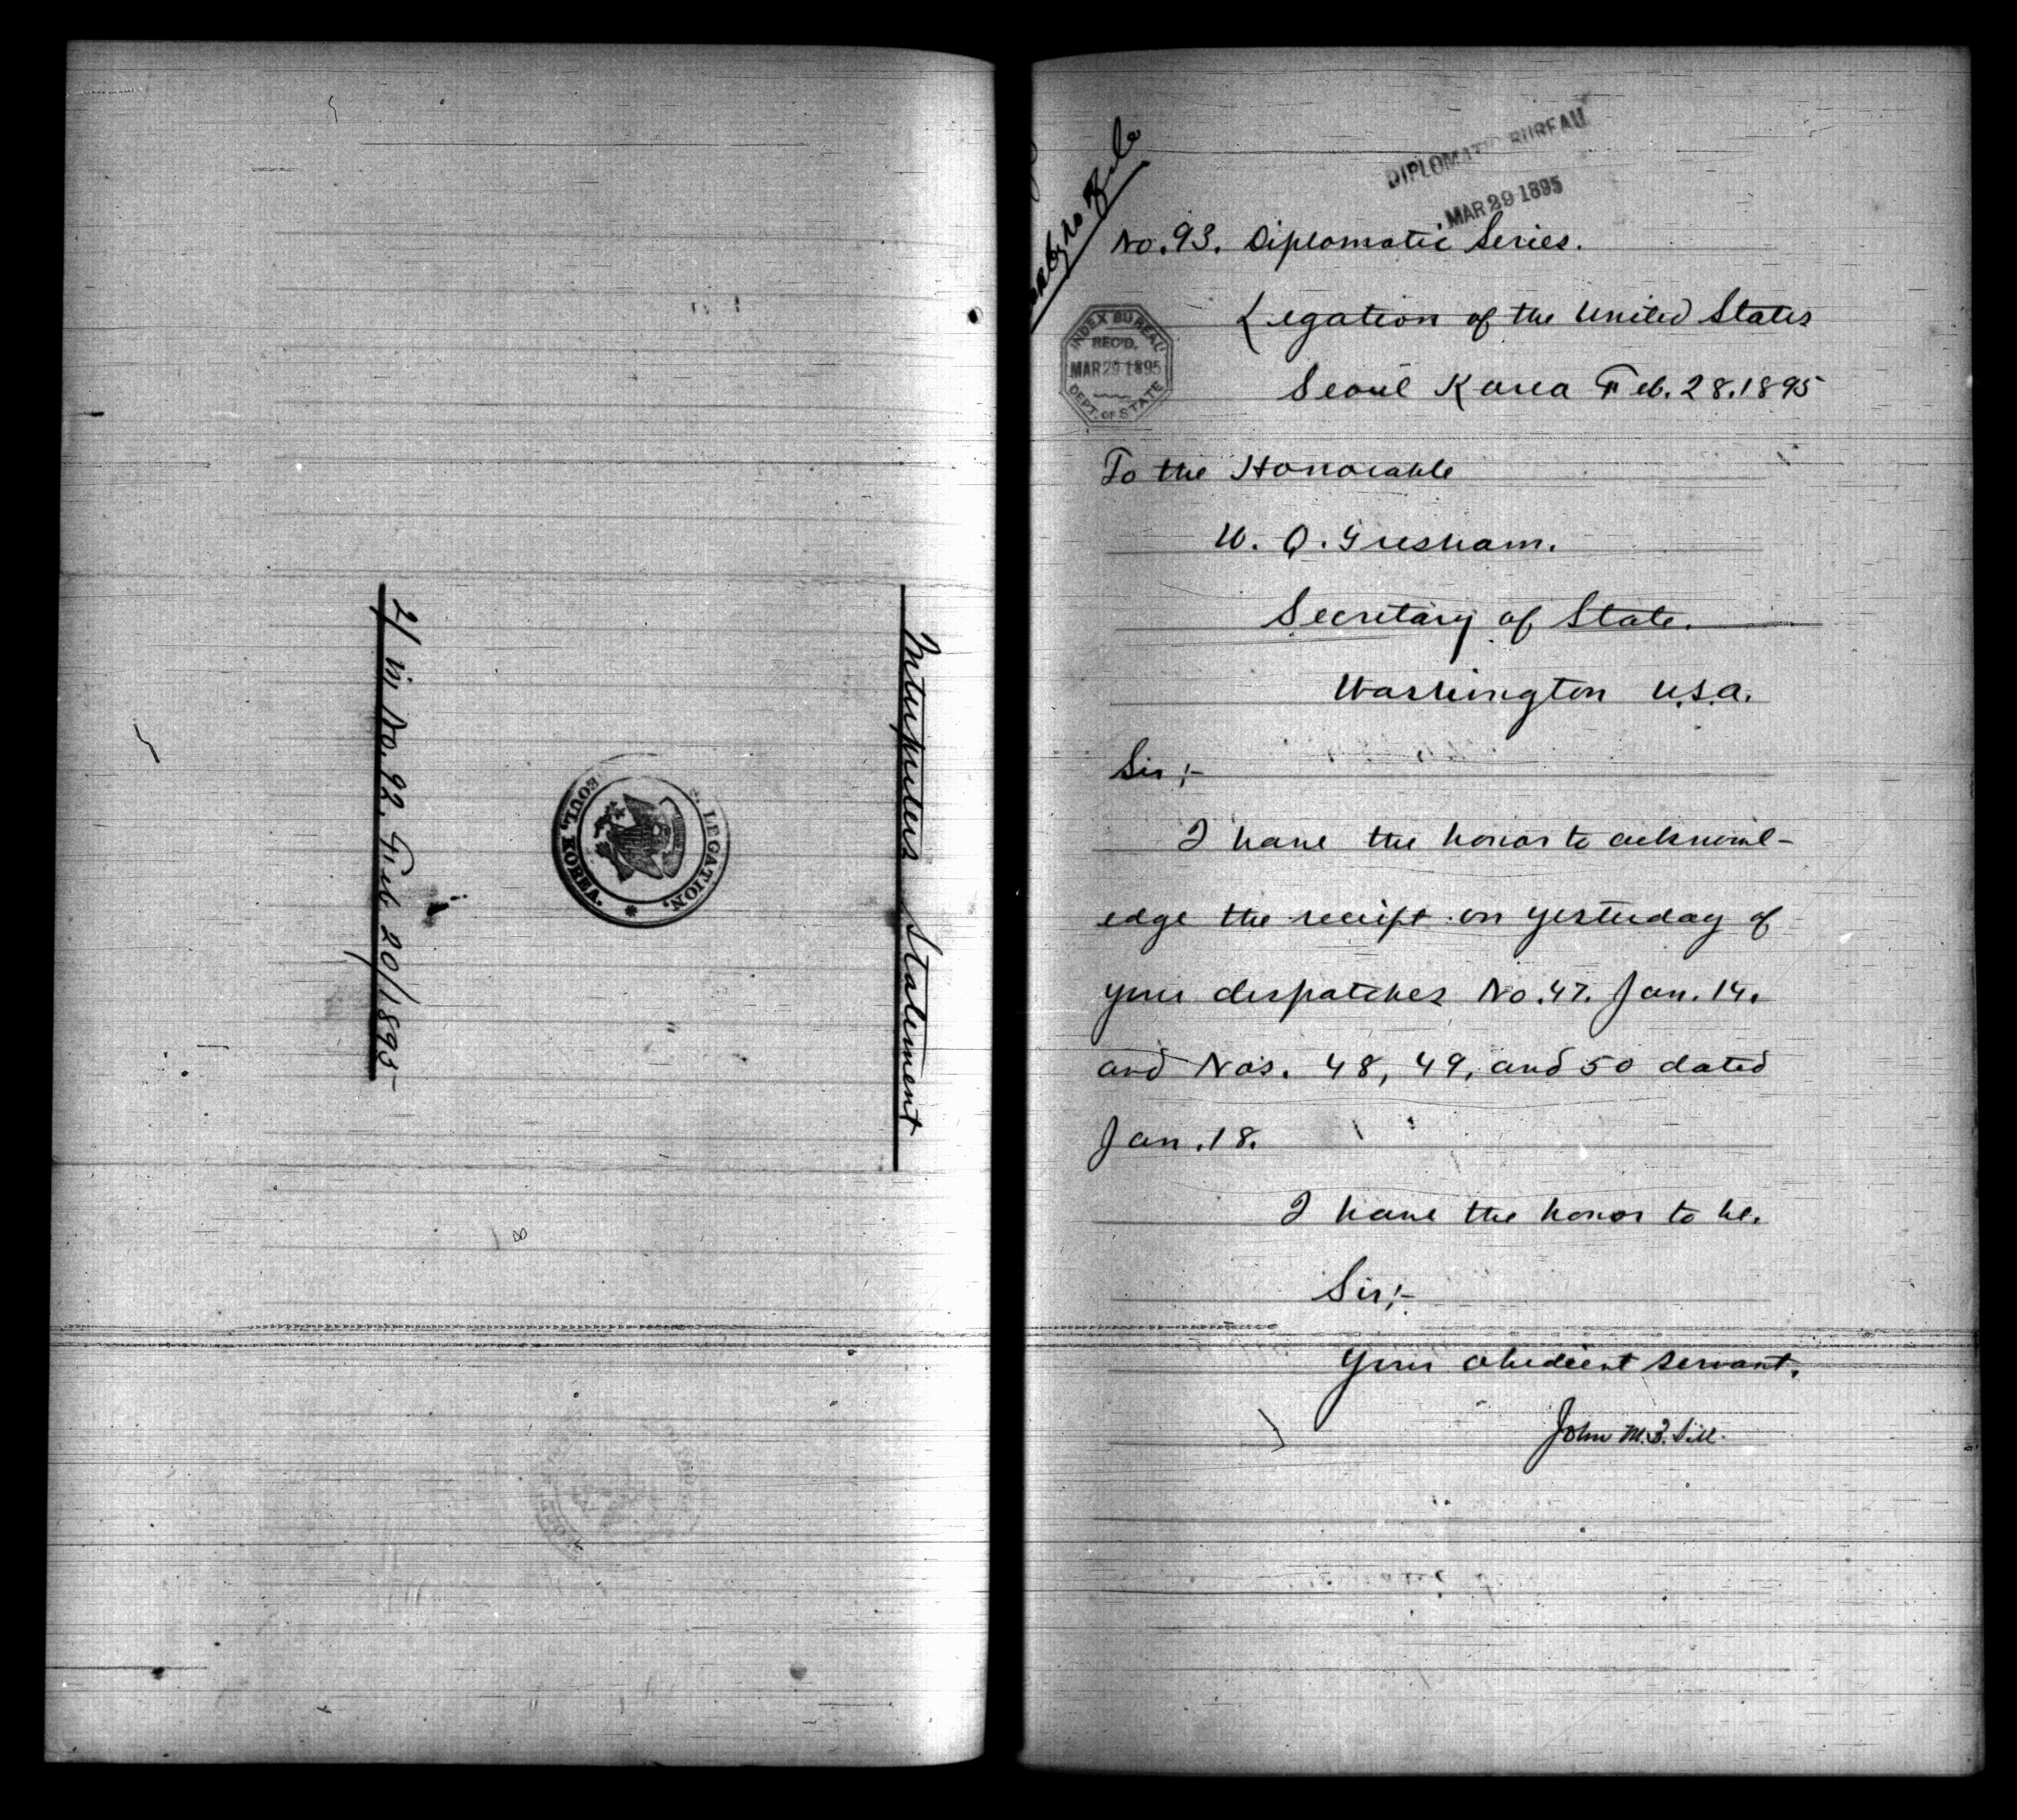 Interpreters Statement
LEGATION,
SEOUL, KOREA.
2/ in No. 92. Feb 20/1895
DIPLOMATIC BUREAU
MAR 29 1895
File
No. 93. Diplomatic Series.
INDEX BUREAU
REC'D.
MAR 29 1895
DEPT. OF STATE
Legation of the United States
Seoul Korea Feb. 28. 1895
To the Honorable
W. Q. Gresham.
Secretary of State.
Washington U.S.A.
Sir;-
I have the honor to acknowl-
edge the receipt on yesterday of
your dispatches No. 47. Jan. 14.
and Nos. 48, 49, and 50 dated
Jan. 18.
I have the honor to be.
Sir;-
Your obedient servant,
John M. B. Sill.